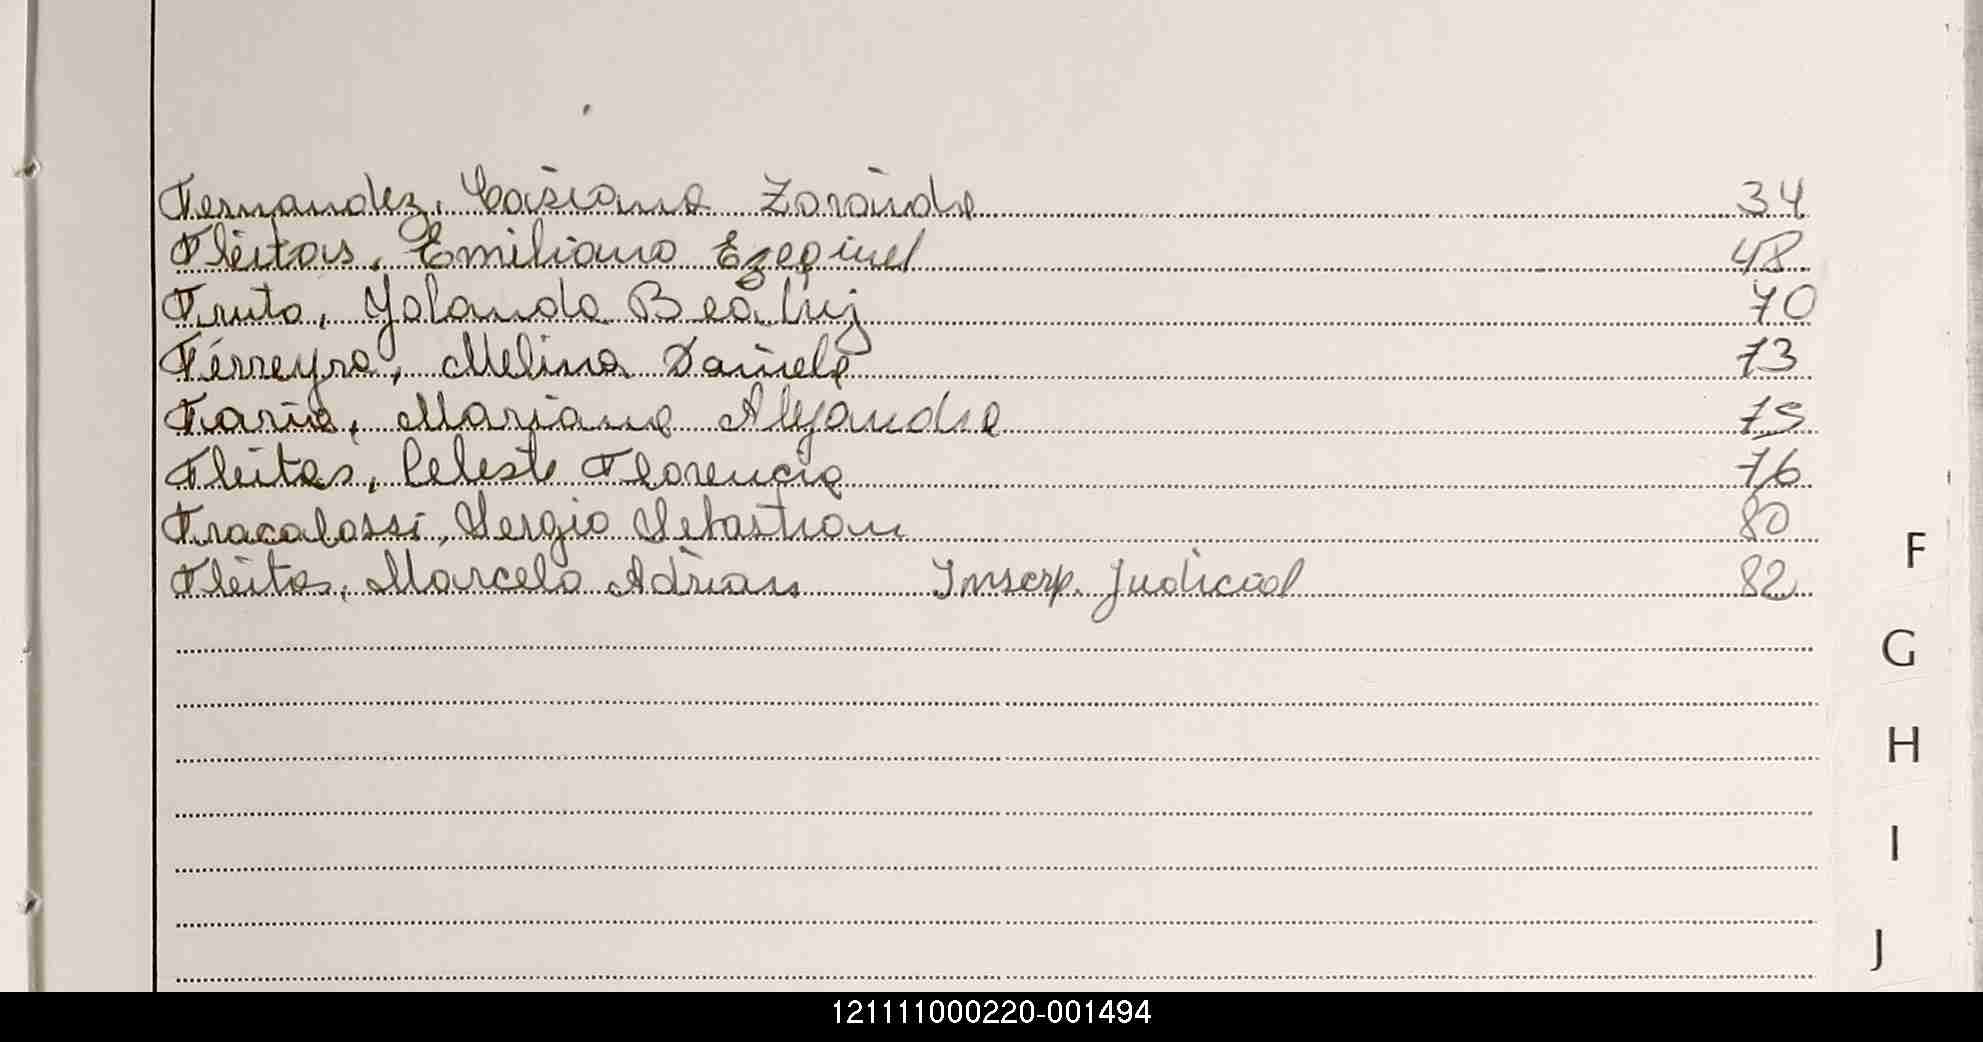 Fernandez, Casiana Zoraida 34
Fleitas, Emiliano Ezequiel 48
Fruto, Yolanda Beatriz 70
Ferreyra, Melina Daniela 73
Faria, Mariana Alejandra 75
Fleitas, Celeste Florencia 76
Fracalossi, Sergio Sebastian 80
Fleitas, Marcelo Adrian Inscrp. Judicial 82
F
G
H
I
J
121111000220-001494